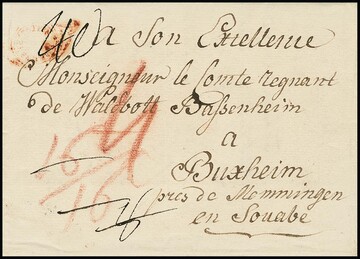 A Son Excellence
Monseigneur le Comte regnant
de Waldbott Bassenheim
a
Buxheim
pres de Memmingen
en Souabe
16
16